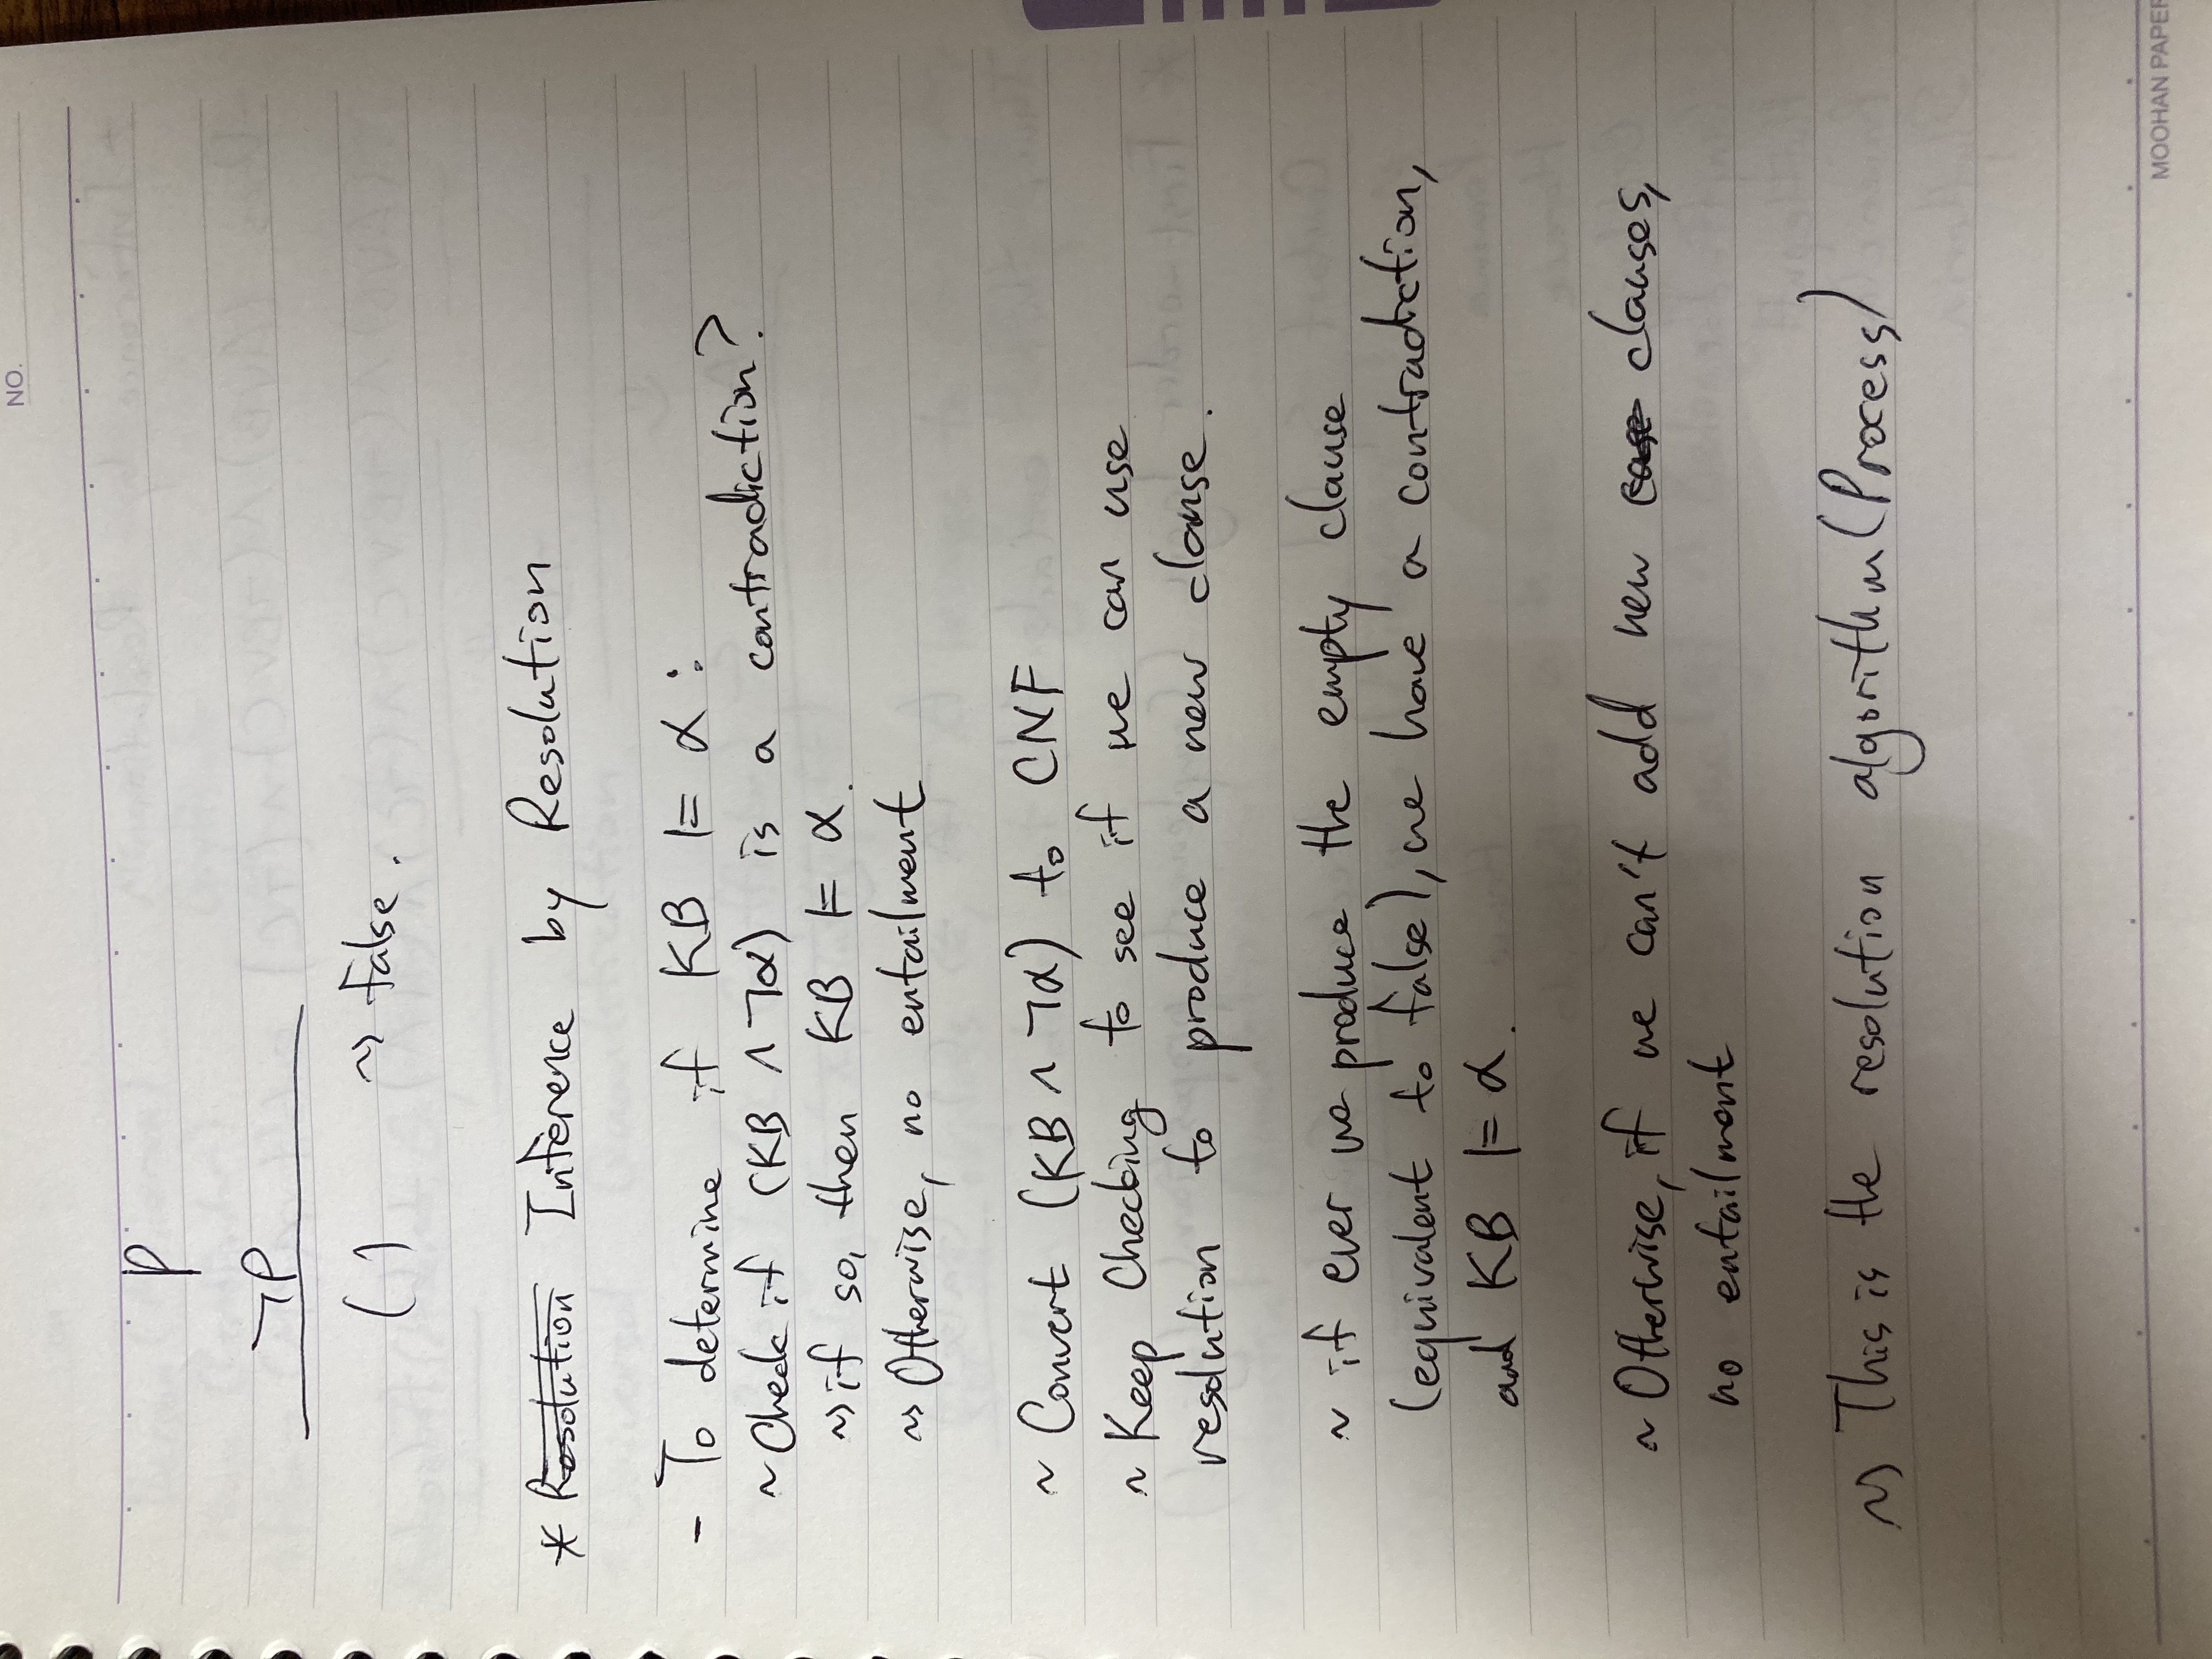 NO.
P
¬P
( ) ~> false.
* Resolution Inference by Resolution
- To determine if KB ⊨ α :
~ Check if (KB ∧ ¬α) is a contradiction?
~> if so, then KB ⊨ α.
~> Otherwise, no entailment
~ Convert (KB ∧ ¬α) to CNF
~ Keep Checking to see if we can use
resolution to produce a new clause.
~ if ever we produce the empty clause
(equivalent to false), we have a contradiction,
and KB ⊨ α.
~ Otherwise, if we can't add new case clauses,
no entailment
~> This is the resolution algorithm (Process)
MOOHAN PAPER